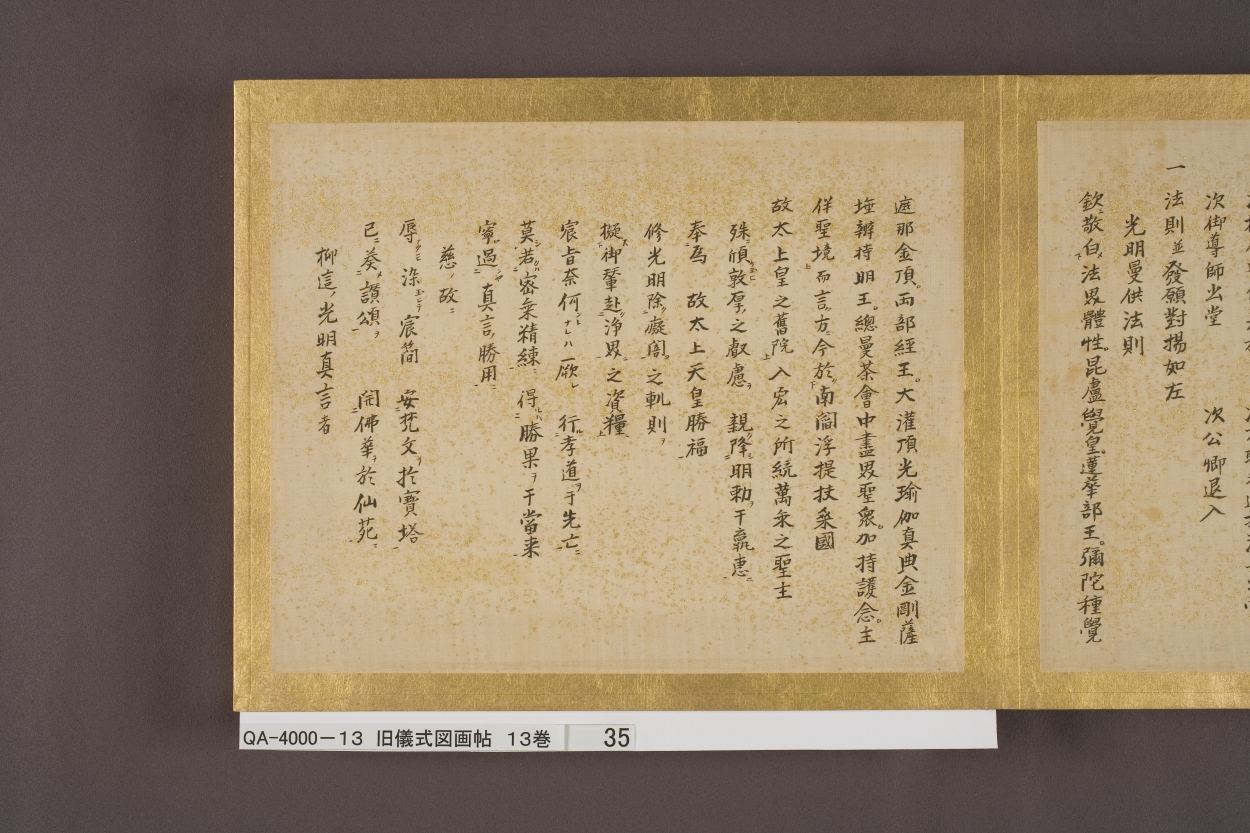 次御導師出堂　次公卿退入
一　法則並發願對揚如左
光明曼供法則
欽敬白法界體性。昆盧覺皇。蓮華部王。彌陀種覺
遮那金頂。両部經王。大灌頂光瑜伽真典金剛薩
埵辨持明王。總曼荼會中盡界聖衆。加持護念。主
伴聖境而言。方今於南閻浮提扶桒國
故太上皇之舊院入宏之所統萬乗之聖主
殊傾敦厚之叡慮　親降明勅于
奉為　故太上天皇勝福
修光明除癡闇之軌則
擬御輦赴淨界之資糧
宸旨奈何ナレハ一厥　行孝道于先亡
莫若密乗精練　得勝果于當来
寧過真言勝用
慈故
辱染宸簡　安梵文於寶塔
已奏讃頌　開佛華於仙苑
柳這光明真言者
QA-4000-13　旧儀式図画帖　13巻　35